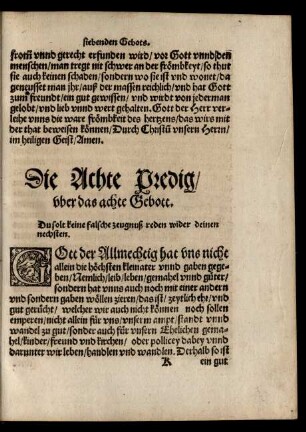 siebenden Gebots.
from̃ vnnd gerecht erfunden wird/ vor Gott vnndsden
menschen/ man tregt nit schwer an der frömbkeyt/ so thut
sie auch keinen schaden/ sondern wo sie ist vnd wonet/ da
geneusset man jhr/ auß der massen reichlich/ vnd hat Gott
zum freundt/ ein gut gewissen/ vnd wird von jederman
gelobt/ vnd lieb vnnd wert gehalten. Gott der Herr ver-
leihe vnns die ware frömbkeit des hertzens/ das wirs mit
der that beweisen können/ Durch Christũ vnsern Herrn/
im heiligen Geist/ Amen.
Die Achte Predig/
vber das achte Gebott.
Du solt keine falsche zeugnuß reden wider deinen
nechsten.
GOtt der Allmechtig hat vns nicht
allein die höchsten kleinater vnnd gaben gege-
ben/ Nemlich/ leib/ leben/ gemahel vnnd güter/
sondern hat vnns auch noch mit einer andern
vnd sondern gaben wöllen zieren/ das ist/ zeytlich ehr/ vnd
gut gerücht/ welcher wir auch nicht können noch sollen
emperen/ nicht allein für vns/ vnserm ampt/ standt vnnd
wandel zu gut/ sonder auch für vnsern Ehelichen gema-
hel/ kinder/ freund vnd kirchen/ oder pollicey dabey vnnd
darunter wir leben/ handlen vnd wandlen. Derhalb so ist
K ein gut